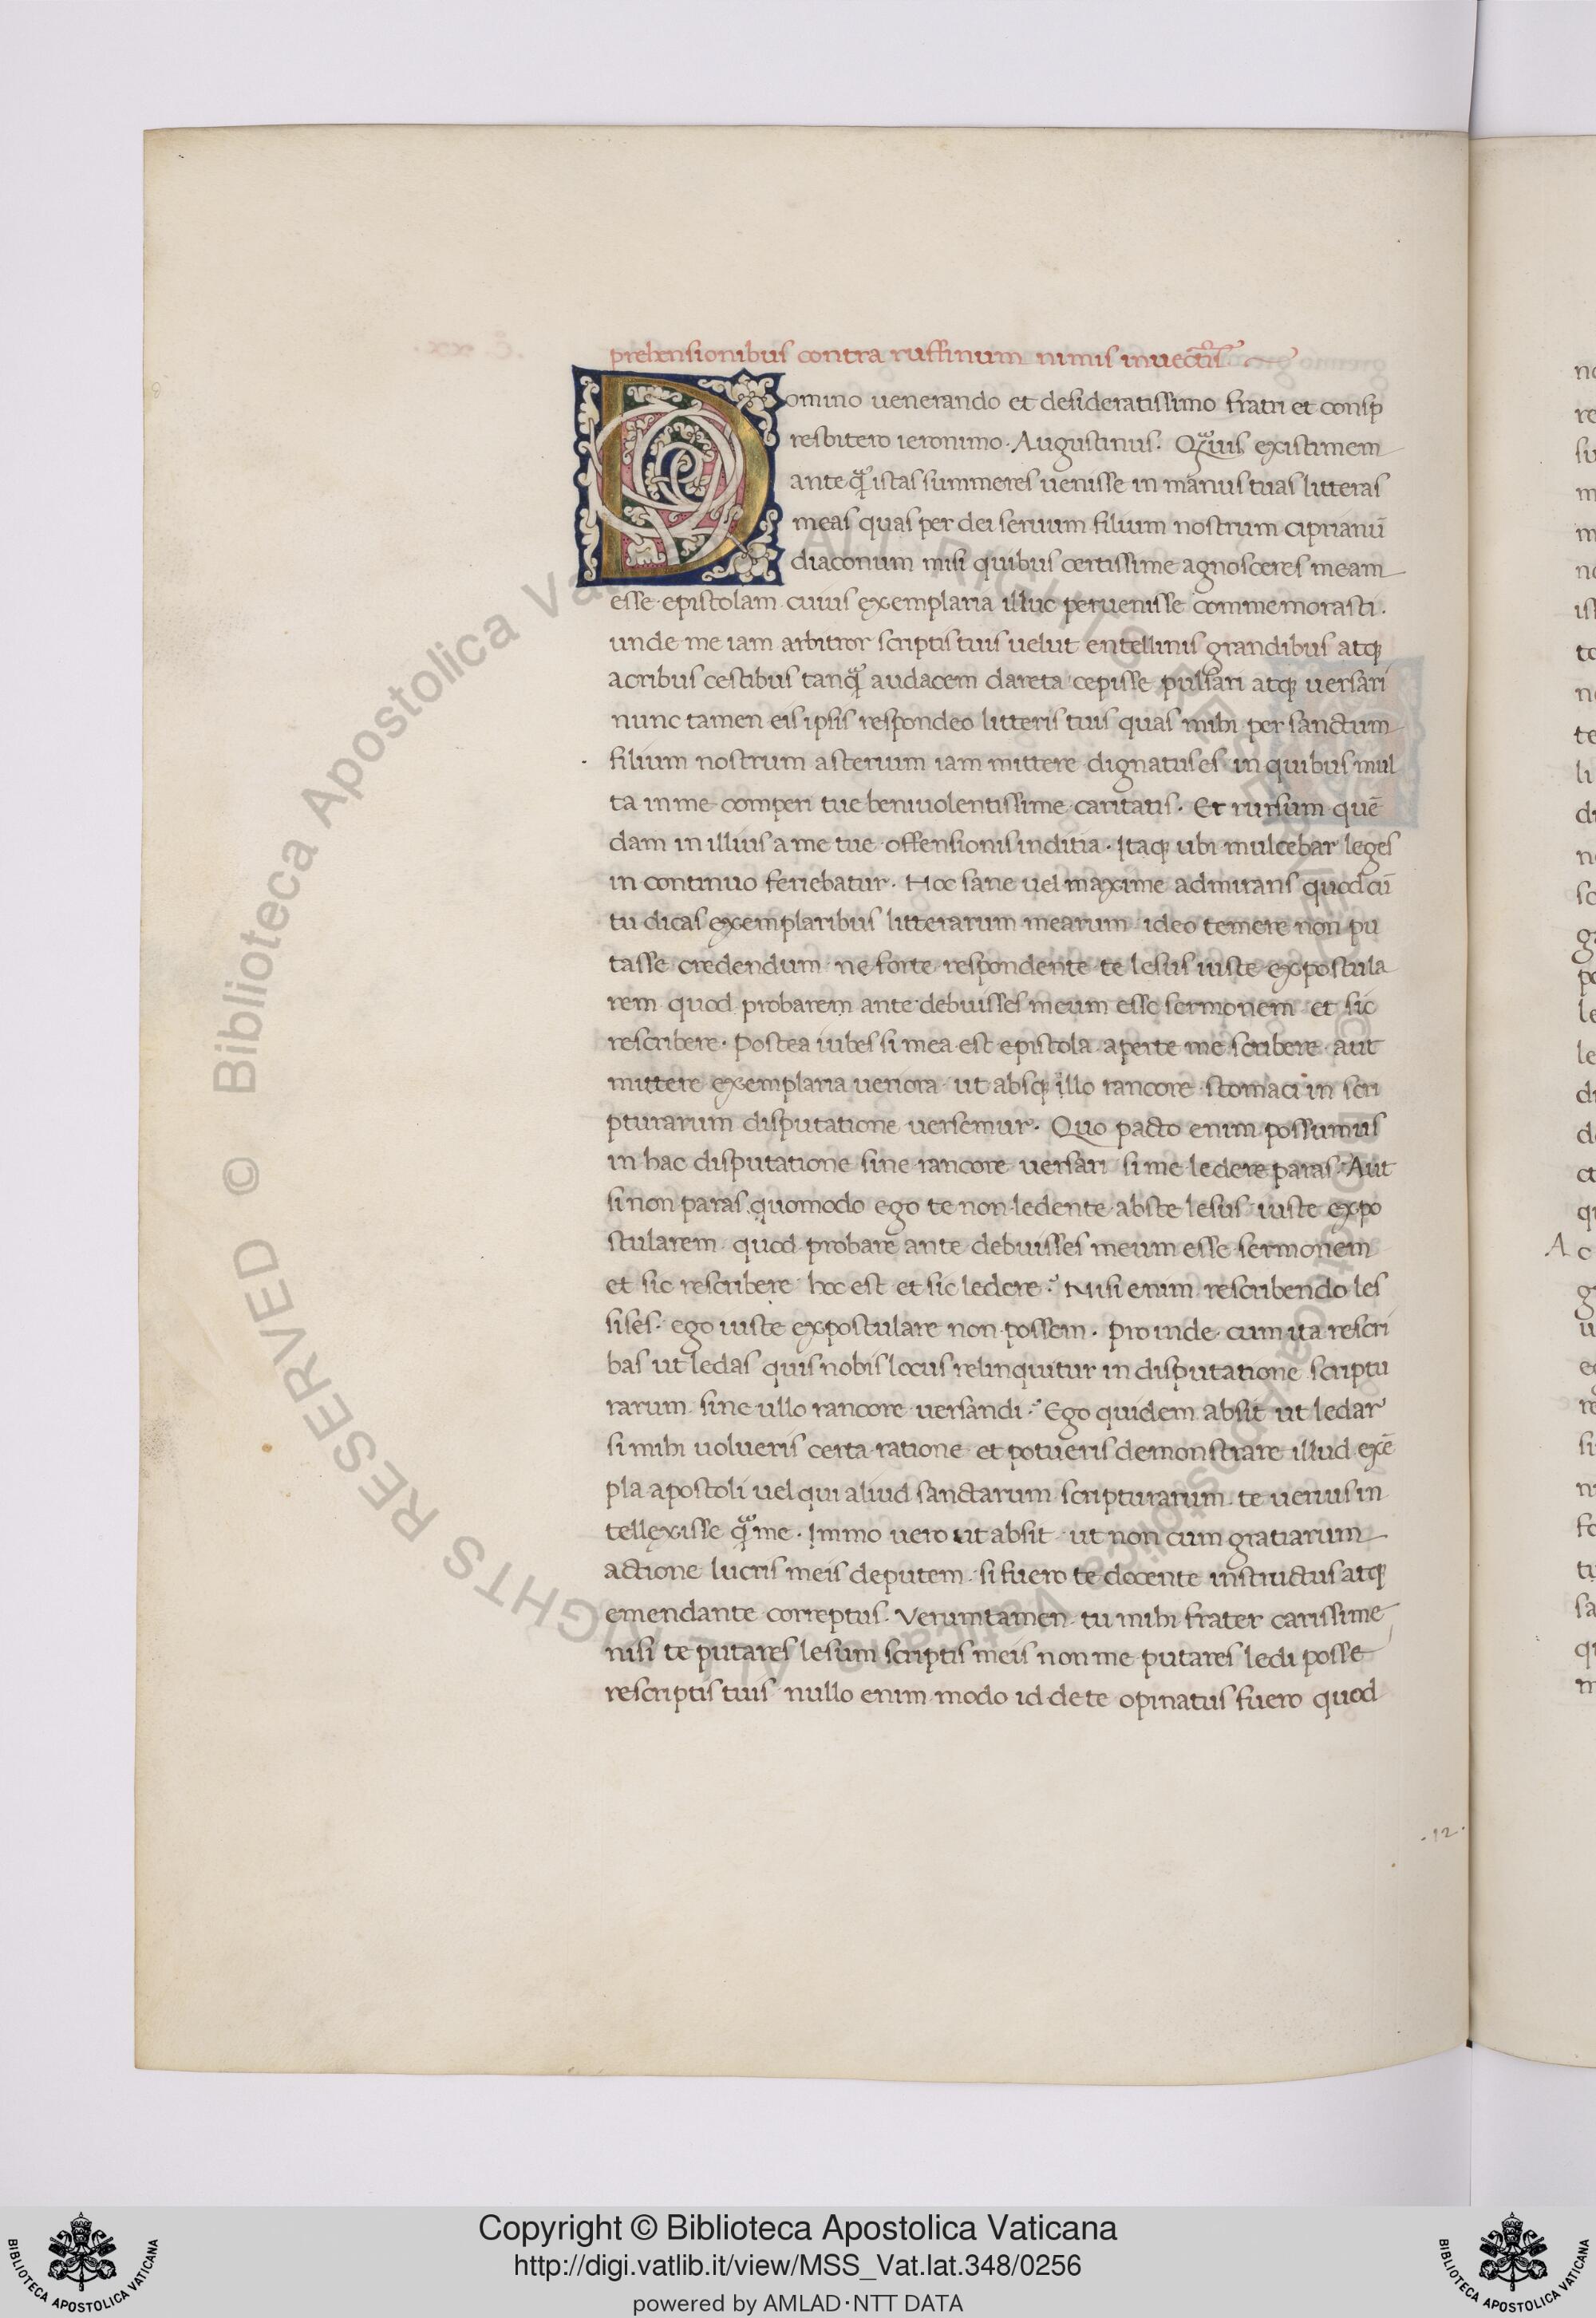 prehensionibus contra ruffinum nimis inuectis
Domino uenerando et desideratissimo fratri et consp
resbitero ieronimo. Augustinus. Quāuis existimem
ante q̄ istas summeres uenisse in manus tuas litteras
meas quas per dei seruum filium nostrum ciprianū
diaconum misi quibus certissime agnosceres meam
esse epistolam cuius exemplaria illuc peruenisse commemorasti.
unde me iam arbitror scriptis tuis uelut entellinis grandibus atq;
acribus cestibus tanq̄ audacem dareta cepisse pulsari atq; uersari
nunc tamen eis ipsis respondeo litteris tuis quas mihi per sanctum
filium nostrum asterium iam mittere dignatus es in quibus mul
ta in me comperi tue beniuolentissime caritatis. Et rursum quē
dam in illius a me tue offensionis inditia. Itaq; ubi mulcebar leges
in continuo feriebatur. Hoc sane uel maxime admirans quod cū
tu dicas exemplaribus litterarum mearum ideo temere non pu
tasse credendum ne forte respondente te lesus iuste expostula
rem quod probarem ante debuisses meum esse sermonem et sic
rescribere. Postea iubes si mea est epistola aperte me scribere aut
mittere exemplaria ueriora ut absq; illo rancore stomaci in scri
pturarum disputatione uersemur. Quo pacto enim possumus
in hac disputatione sine rancore uersari si me ledere paras. Aut
si non paras quomodo ego te non ledente abs te lesus iuste expo
stularem quod probare ante debuisses meum esse sermonem
et sic rescribere hoc est et sic ledere. Nisi enim rescribendo les
sises. ego iuste expostulare non possem. Proinde cum ita rescri
bas ut ledas quis nobis locus relinquitur in disputatione scriptu
rarum sine ullo rancore uersandi. Ego quidem absit ut ledar
si mihi uolueris certa ratione et potueris demonstrare illud exē
pla apostoli uel qui aliud sanctarum scripturarum te uerius in
tellexisse q̄ me. Immo uero ut absit ut non cum gratiarum
actione lucris meis deputem si fuero te docente instructus atq;
emendante correptus. Verumtamen tu mihi frater carissime
nisi te putares lesum scriptis meis non me putares ledi posse
rescriptis tuis nullo enim modo id de te opinatus fuero quod
.12.
Biblioteca Apostolica Vaticana
ALL RIGHTS RESERVED ©
Copyright © Biblioteca Apostolica Vaticana
http://digi.vatlib.it/view/MSS_Vat.lat.348/0256
powered by AMLAD·NTT DATA
BIBLIOTECA APOSTOLICA VATICANA
BIBLIOTECA APOSTOLICA VATICANA